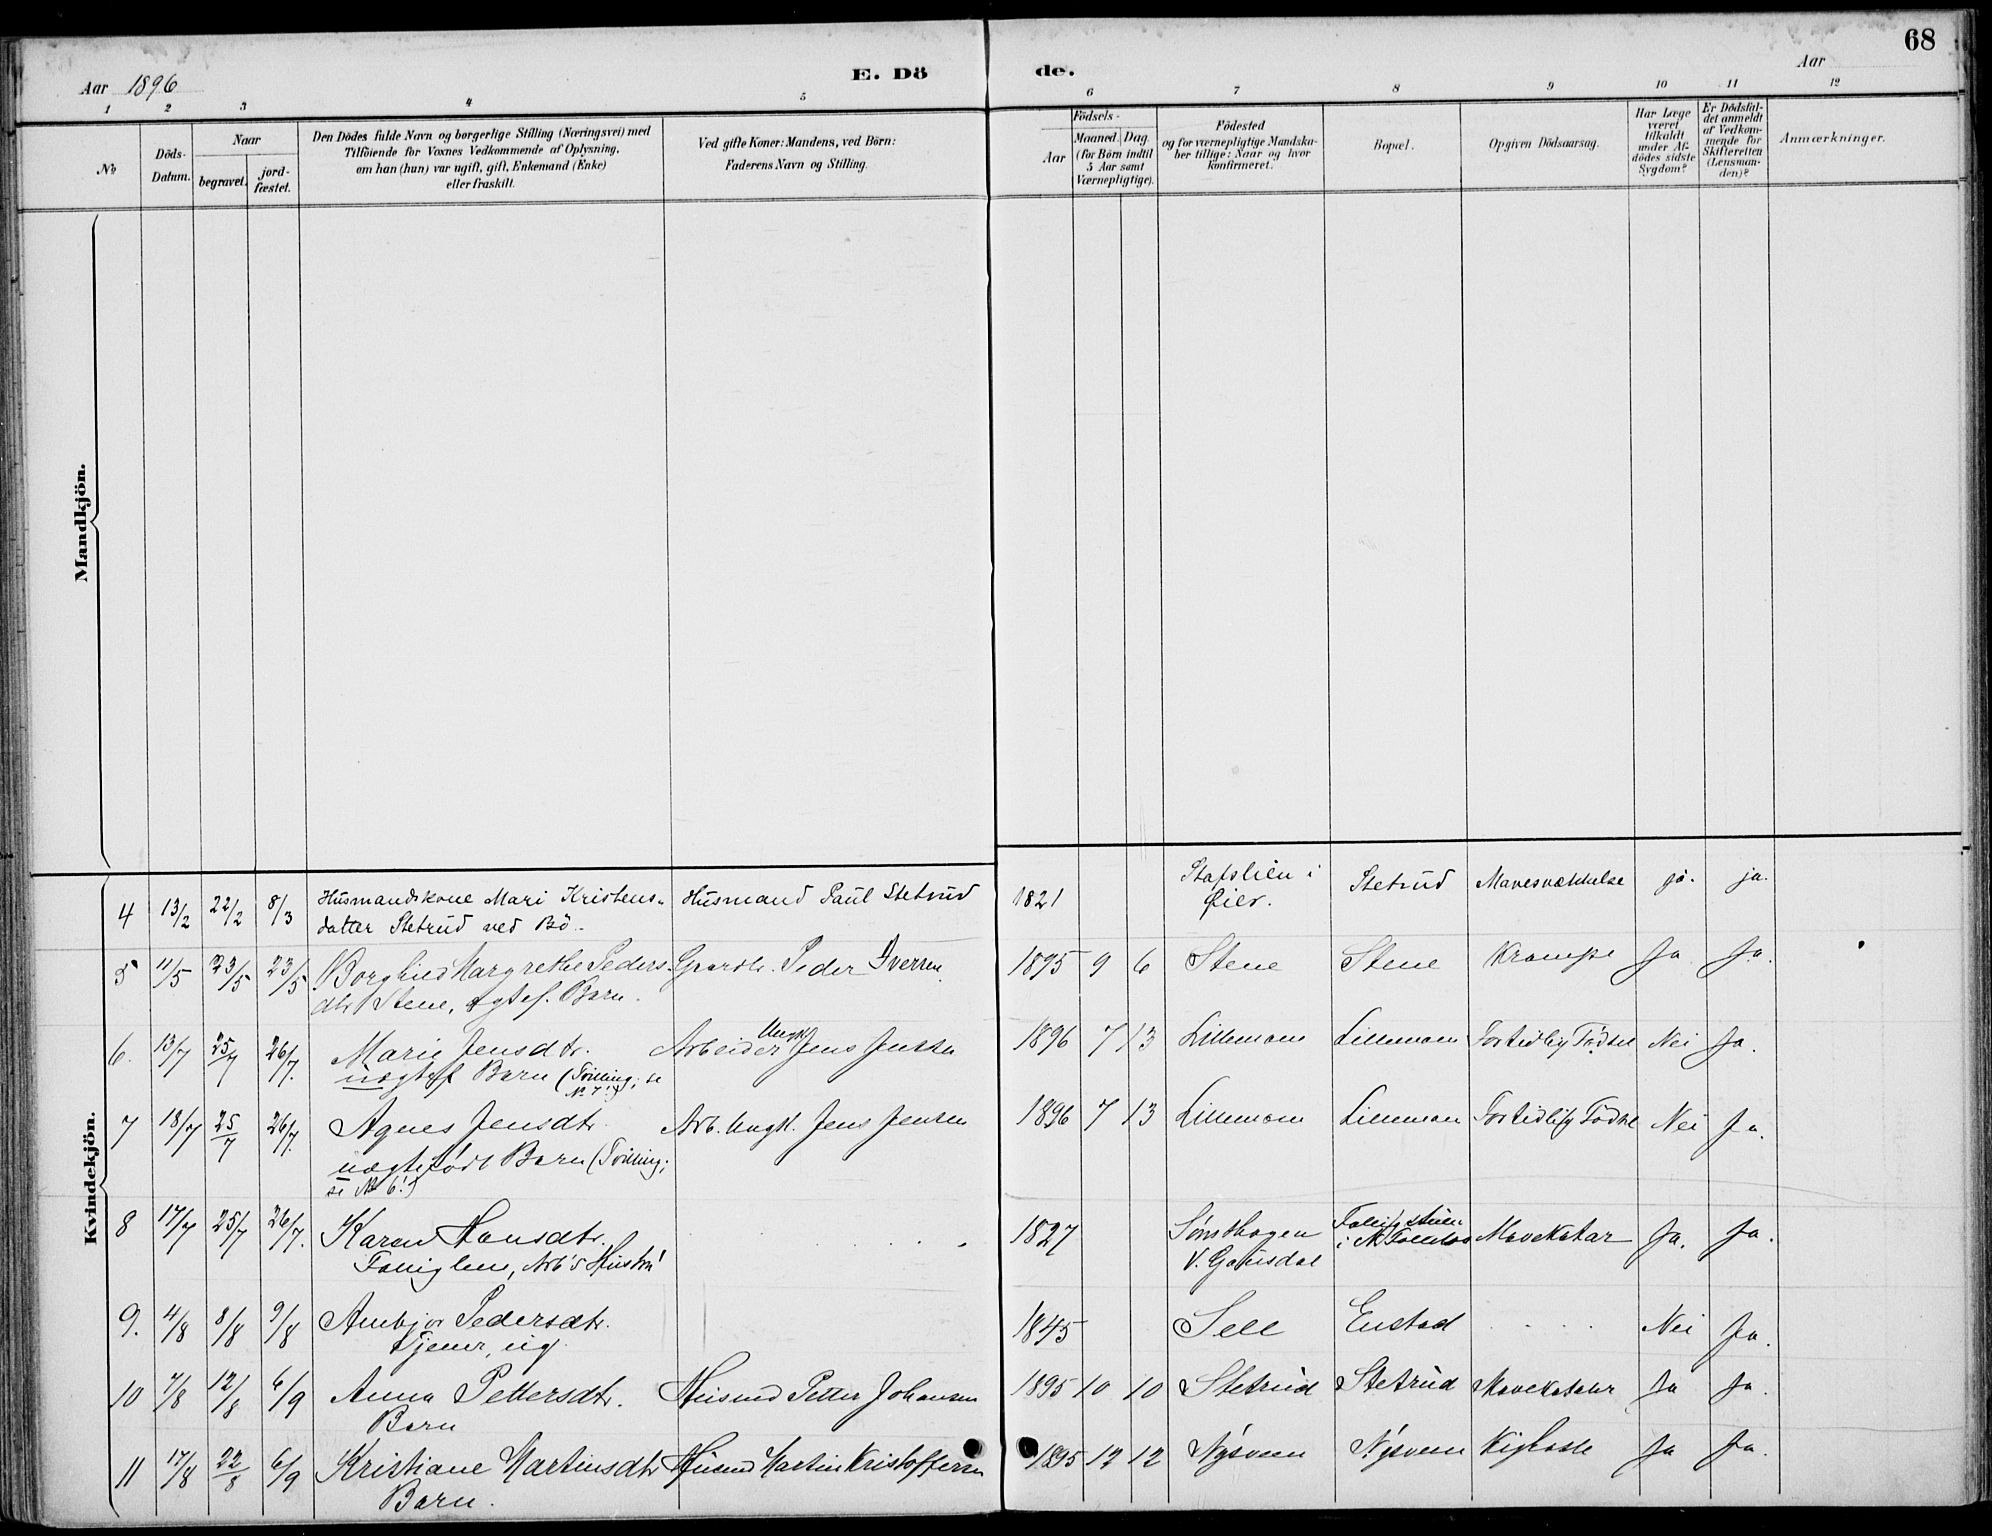 68
Aar 1896
E. Dö de.
Aar
1 2 3 4 5 6 7 8 9 10 11 12
No
Döds-Datum.
Naar
begravet.
jord-fæstet.
Den Dödes fulde Navn og borgerlige Stilling (Næringsvei) med
Tilföiende for Voxnes Vedkommende af Oplysning,
om han (hun) var ugift, gift, Enkemand (Enke)
eller fraskilt.
Ved gifte Koner: Mandens, ved Börn:
Faderens Navn og Stilling.
Födsels-
Aar
Maaned. Dag
(for Börn indtil
5 Aar samt
Værnepligtige).
Födested
og for værnepligtige Mandska-
ber tillige: Naar og hvor
konfirmeret.
Bopæl.
Opgiven Dödsaarsag.
Har Læge
været
tilkaldt
under Af-
dödes sidste
Sygdom?
Er Dödsfal-
det anmeldt
af Vedkom-
mende for
Skifteretten
(Lensman-
den)?
Anmærkninger.
Mandkjön.
Kvindekjön.
4 13/2 22/2 8/3 Husmandskone Mari Kristens- Husmand Paul Stetrud 1821 Stafslien i Stetrud Mavesvækkelse ja. ja.
datter Stetrud ved Bö. Øier.
5 11/5 23/5 23/5 Borghild Margrethe Peders- Gaardbr. Peder Iversen 1895 9 6 Stene Stene Krampe Ja Ja.
dtr Stene, ægtef. Barn.
6. 13/7 25/7 26/7. Marie Jensdtr. Arbeider Ungk. Jens Jensen 1896 7 13 Lillemoen Lillemoen Fortidlig Födsel Nei Ja.
uægtef Barn (Tvilling; se
No 7!)
7 18/7 25/7 26/7. Agnes Jensdtr. Arb. Ungk. Jens Jensen 1896 7 13 Lillemoen Lillemoen Fortidlig Födsel Nei Ja.
uægtefödt Barn (Tvilling;
se No 6!)
8 17/7 25/7 26/7. Karen Hansdtr. 1827 Sønsthagen Mavekatar Ja. Ja.
Arb's Hustru V. Gausdal
9. 4/8 8/8 9/8 Ambjør Pedersdtr. 1845 Sell Enstad Nei Ja.
Tjener, ug.
10 7/8 12/8 6/9 Anna Pettersdtr. Husmd Petter Johansen 1895 10 10 Stetrud Stetrud Mavekatahr Ja Ja.
Barn
11 17/8 22/8 6/9 Kristiane Martinsdtr Husmd Martin Kristoffersen 1895 12 12 Nysveen Nysveen Kighoste Ja Ja.
Barn.